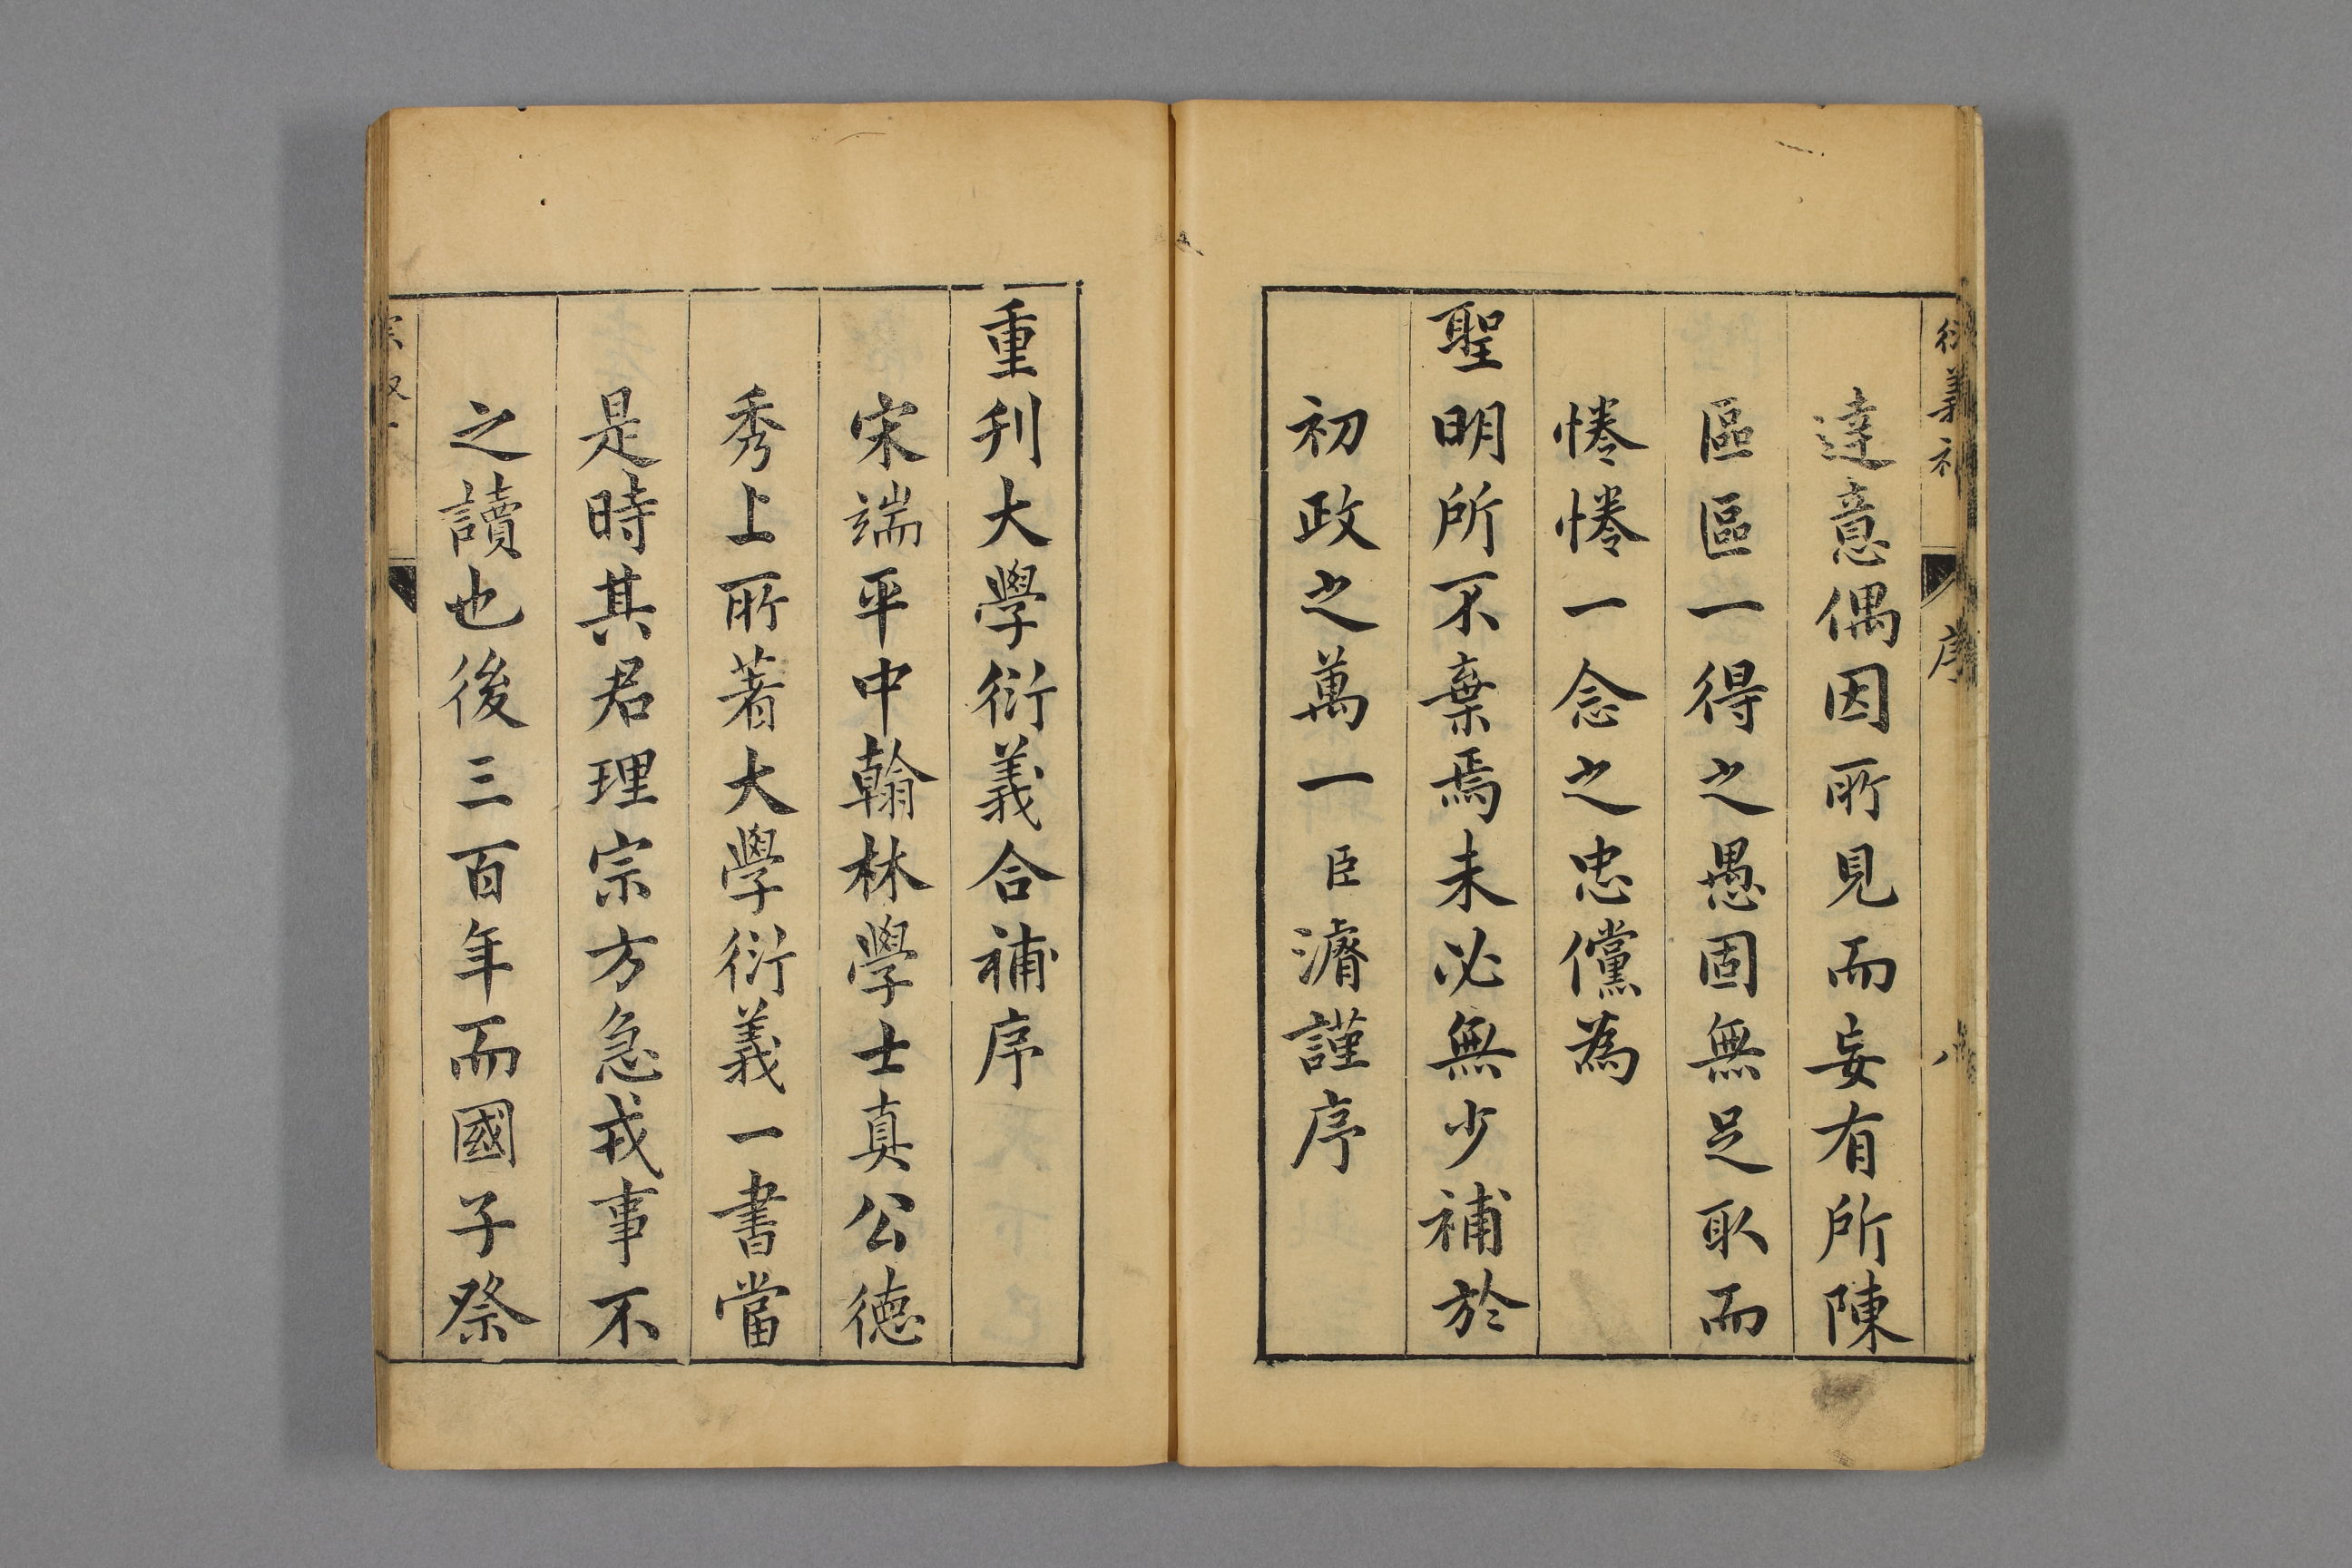 達意偶因所見而妄有所陳
區區一得之愚固無足取而
惓惓一念之忠儻為
聖明所不棄焉未必無少補於
初政之萬一臣濬謹序
序
重刋大學衍義合補序
宋端平中翰林學士真公德
秀上所著大學衍義一書當
是時其君理宗方急戎事不
之讀也後三百年而國子祭